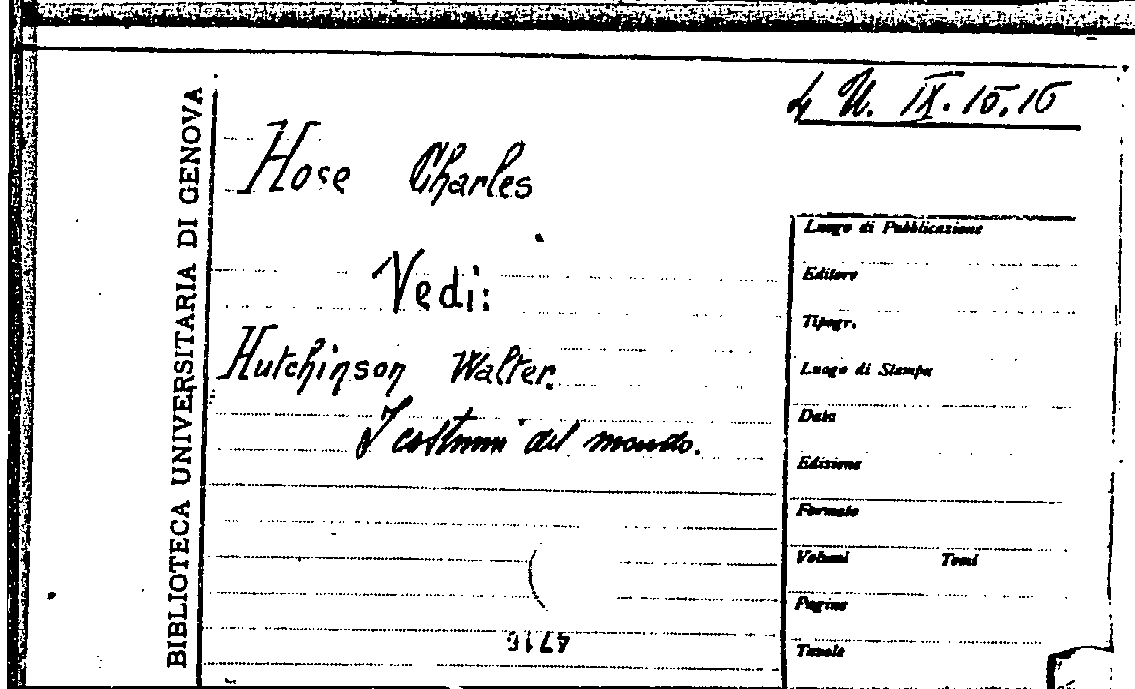 4 U. IX. 15. 16
Hose Charles
Vedi:
Hutchinson Walter.
I costumi del mondo.
BIBLIOTECA UNIVERSITARIA DI GENOVA
Luogo di Pubblicazione
Editore
Tipogr.
Luogo di Stampa
Data
Edizione
Formato
Volumi Tomi
Pagine
Tavole